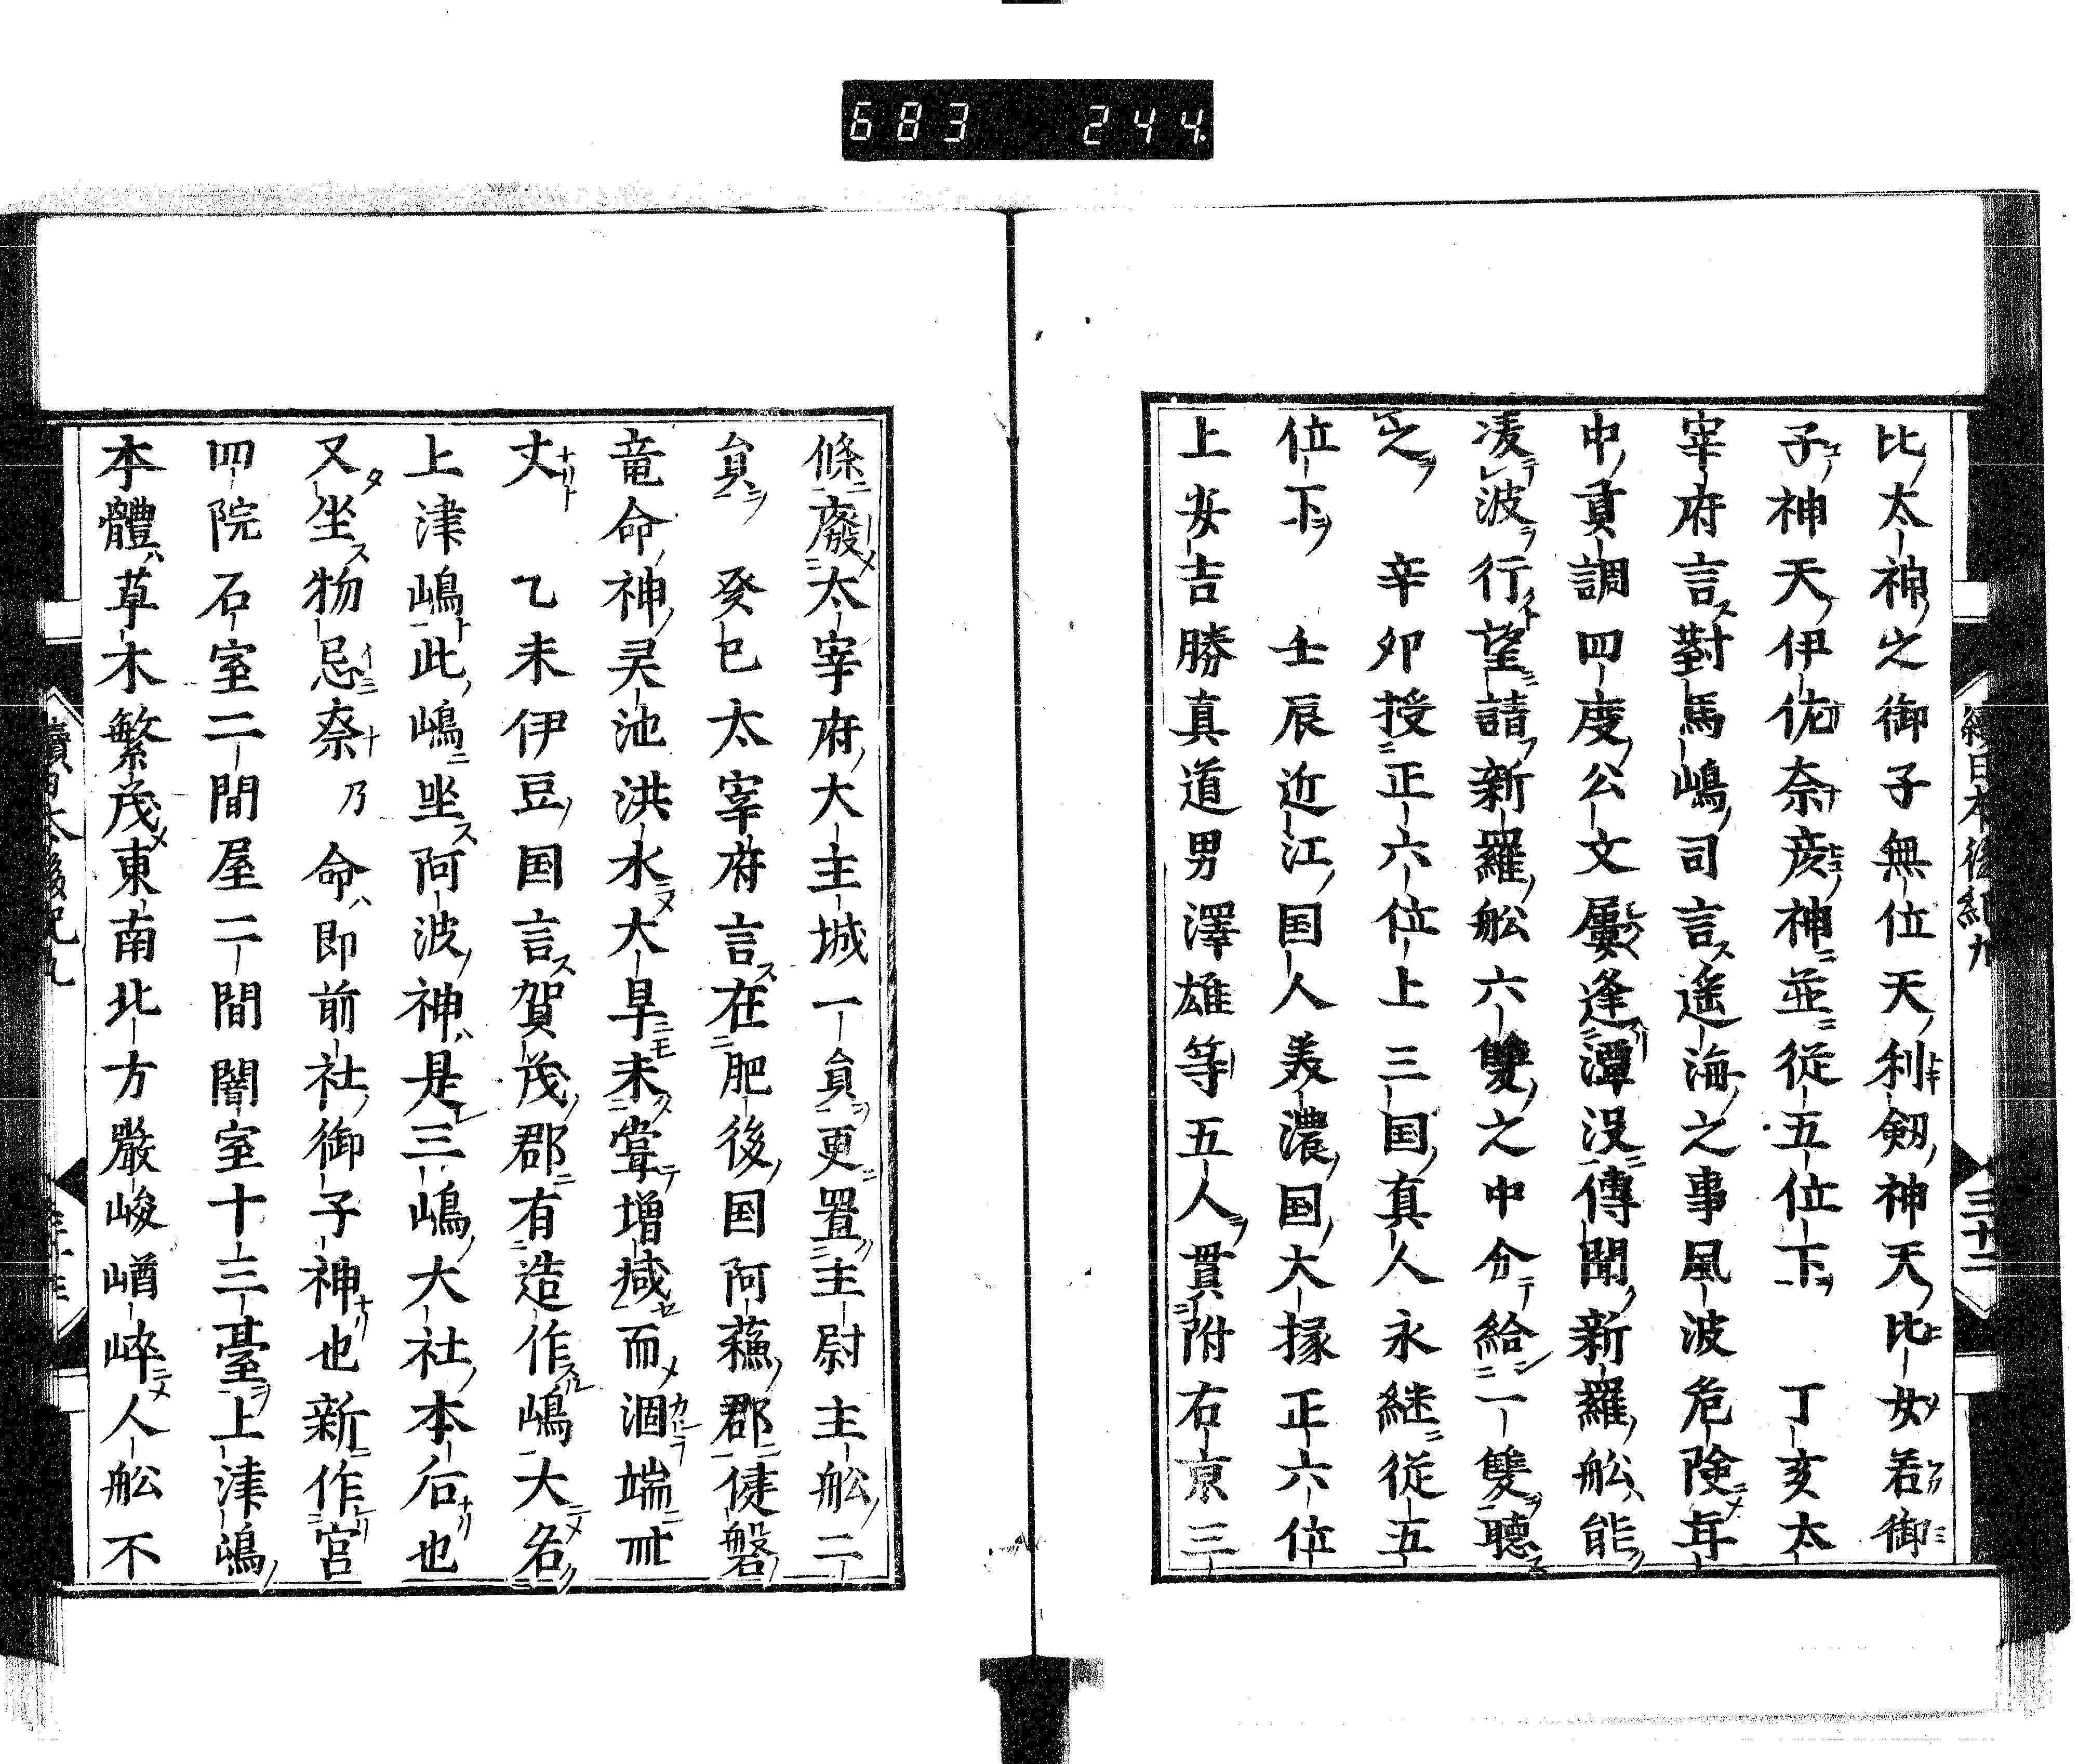 683 244
續日本後紀九
三十二
比太神之御子無位天利劔神天比女若御
子神天伊佐奈彦神並從五位下　丁亥太
宰府言對馬嶋司言遥海之事風波危険年
中貢調四度公文屢逢漂没傳聞新羅舩能
凌波行望請新羅舩六雙之中分給一雙聽
之　辛卯授正六位上三国真人永継從五
位下　壬辰近江国人美濃国大掾正六位
上安吉勝真道男澤雄等五人貫附右京三
條廢太宰府大主城一員更置主尉主舩二
員　癸巳太宰府言在肥後国阿蘇郡健磐
竜命神灵池洪水大旱未甞増減而涸端卌
丈　乙未伊豆国言賀茂郡有造作嶋大名
上津嶋此嶋坐阿波神是三嶋大社本后也
又坐物忌奈乃命即前社御子神也新作宮
四院石室二間屋二間闇室十三臺上津嶋
本體草木繁茂東南北方嚴峻崷崪人舩不